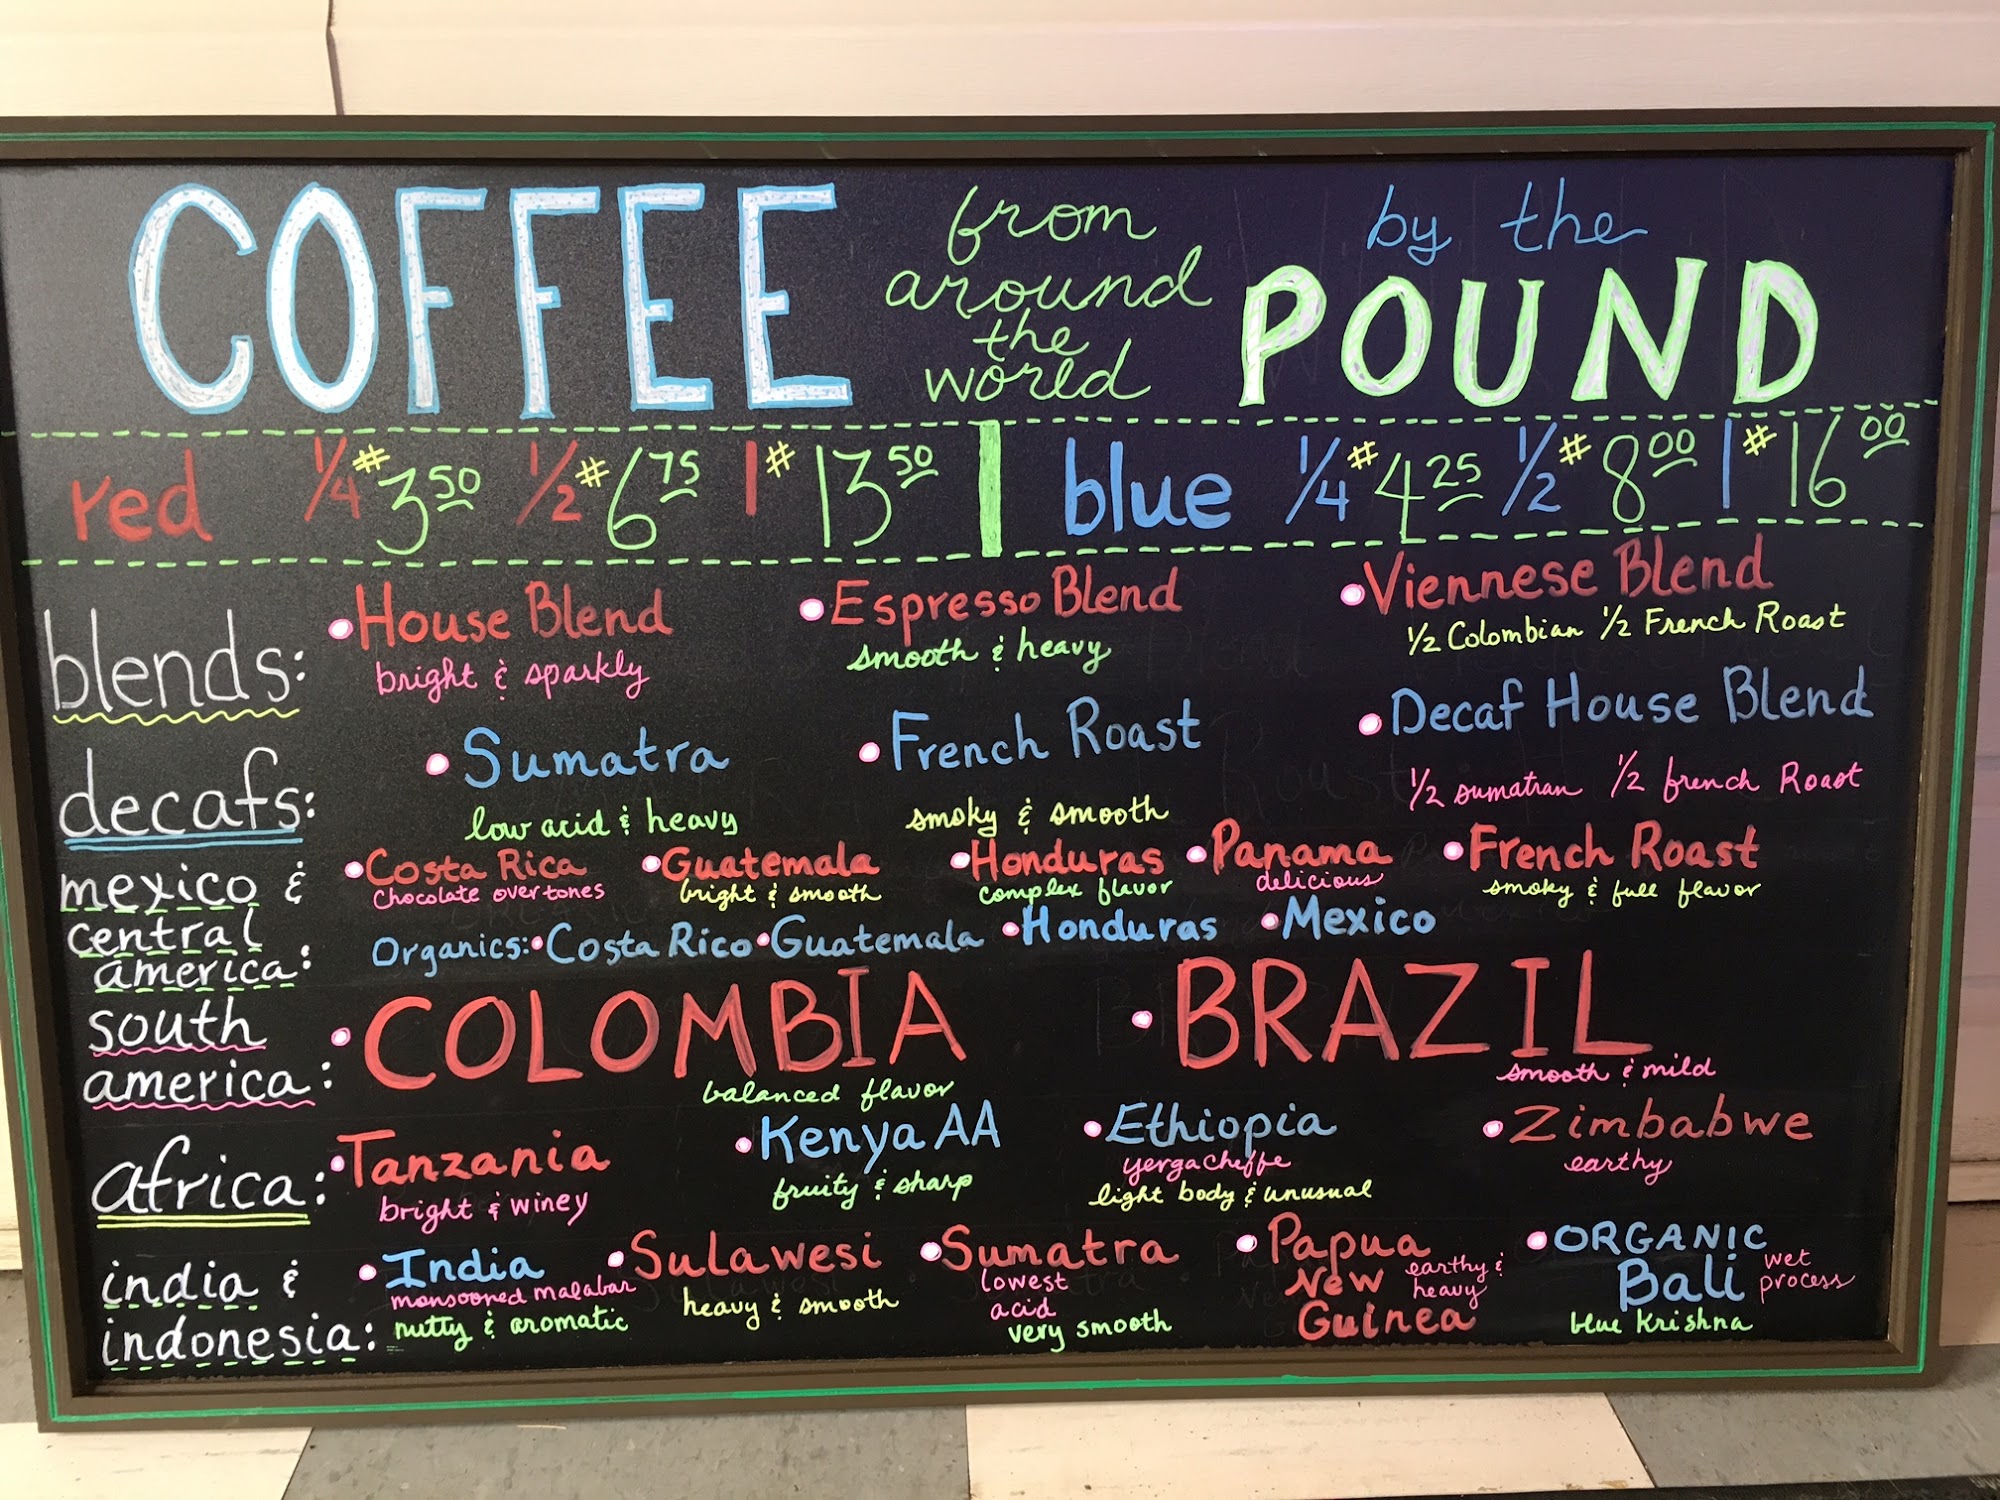 COFFEE from around the world by the POUND
red 1/4 # 3.50 1/2 # 6.75 1 # 13.50 | blue 1/4 # 4.25 1/2 # 8.00 1 # 16.00
blends: • House Blend • Espresso Blend • Viennese Blend
bright & sparkly smooth & heavy 1/2 Colombian 1/2 French Roast
decafs: • Sumatra • French Roast • Decaf House Blend
low acid & heavy smoky & smooth 1/2 sumatran 1/2 french Roast
mexico & central america: • Costa Rica • Guatemala • Honduras • Panama • French Roast
chocolate overtones bright & smooth complex flavor delicious smoky & full flavor
Organics: • Costa Rico • Guatemala • Honduras • Mexico
south america: • COLOMBIA • BRAZIL
balanced flavor smooth & mild
africa: • Tanzania • Kenya AA • Ethiopia • Zimbabwe
bright & winey fruity & sharp yergacheffe earthy
light body & unusual
india & indonesia: • India • Sulawesi • Sumatra • Papua New Guinea • ORGANIC Bali
monsooned malabar heavy & smooth lowest acid earthy & heavy wet process
nutty & aromatic very smooth blue Krishna